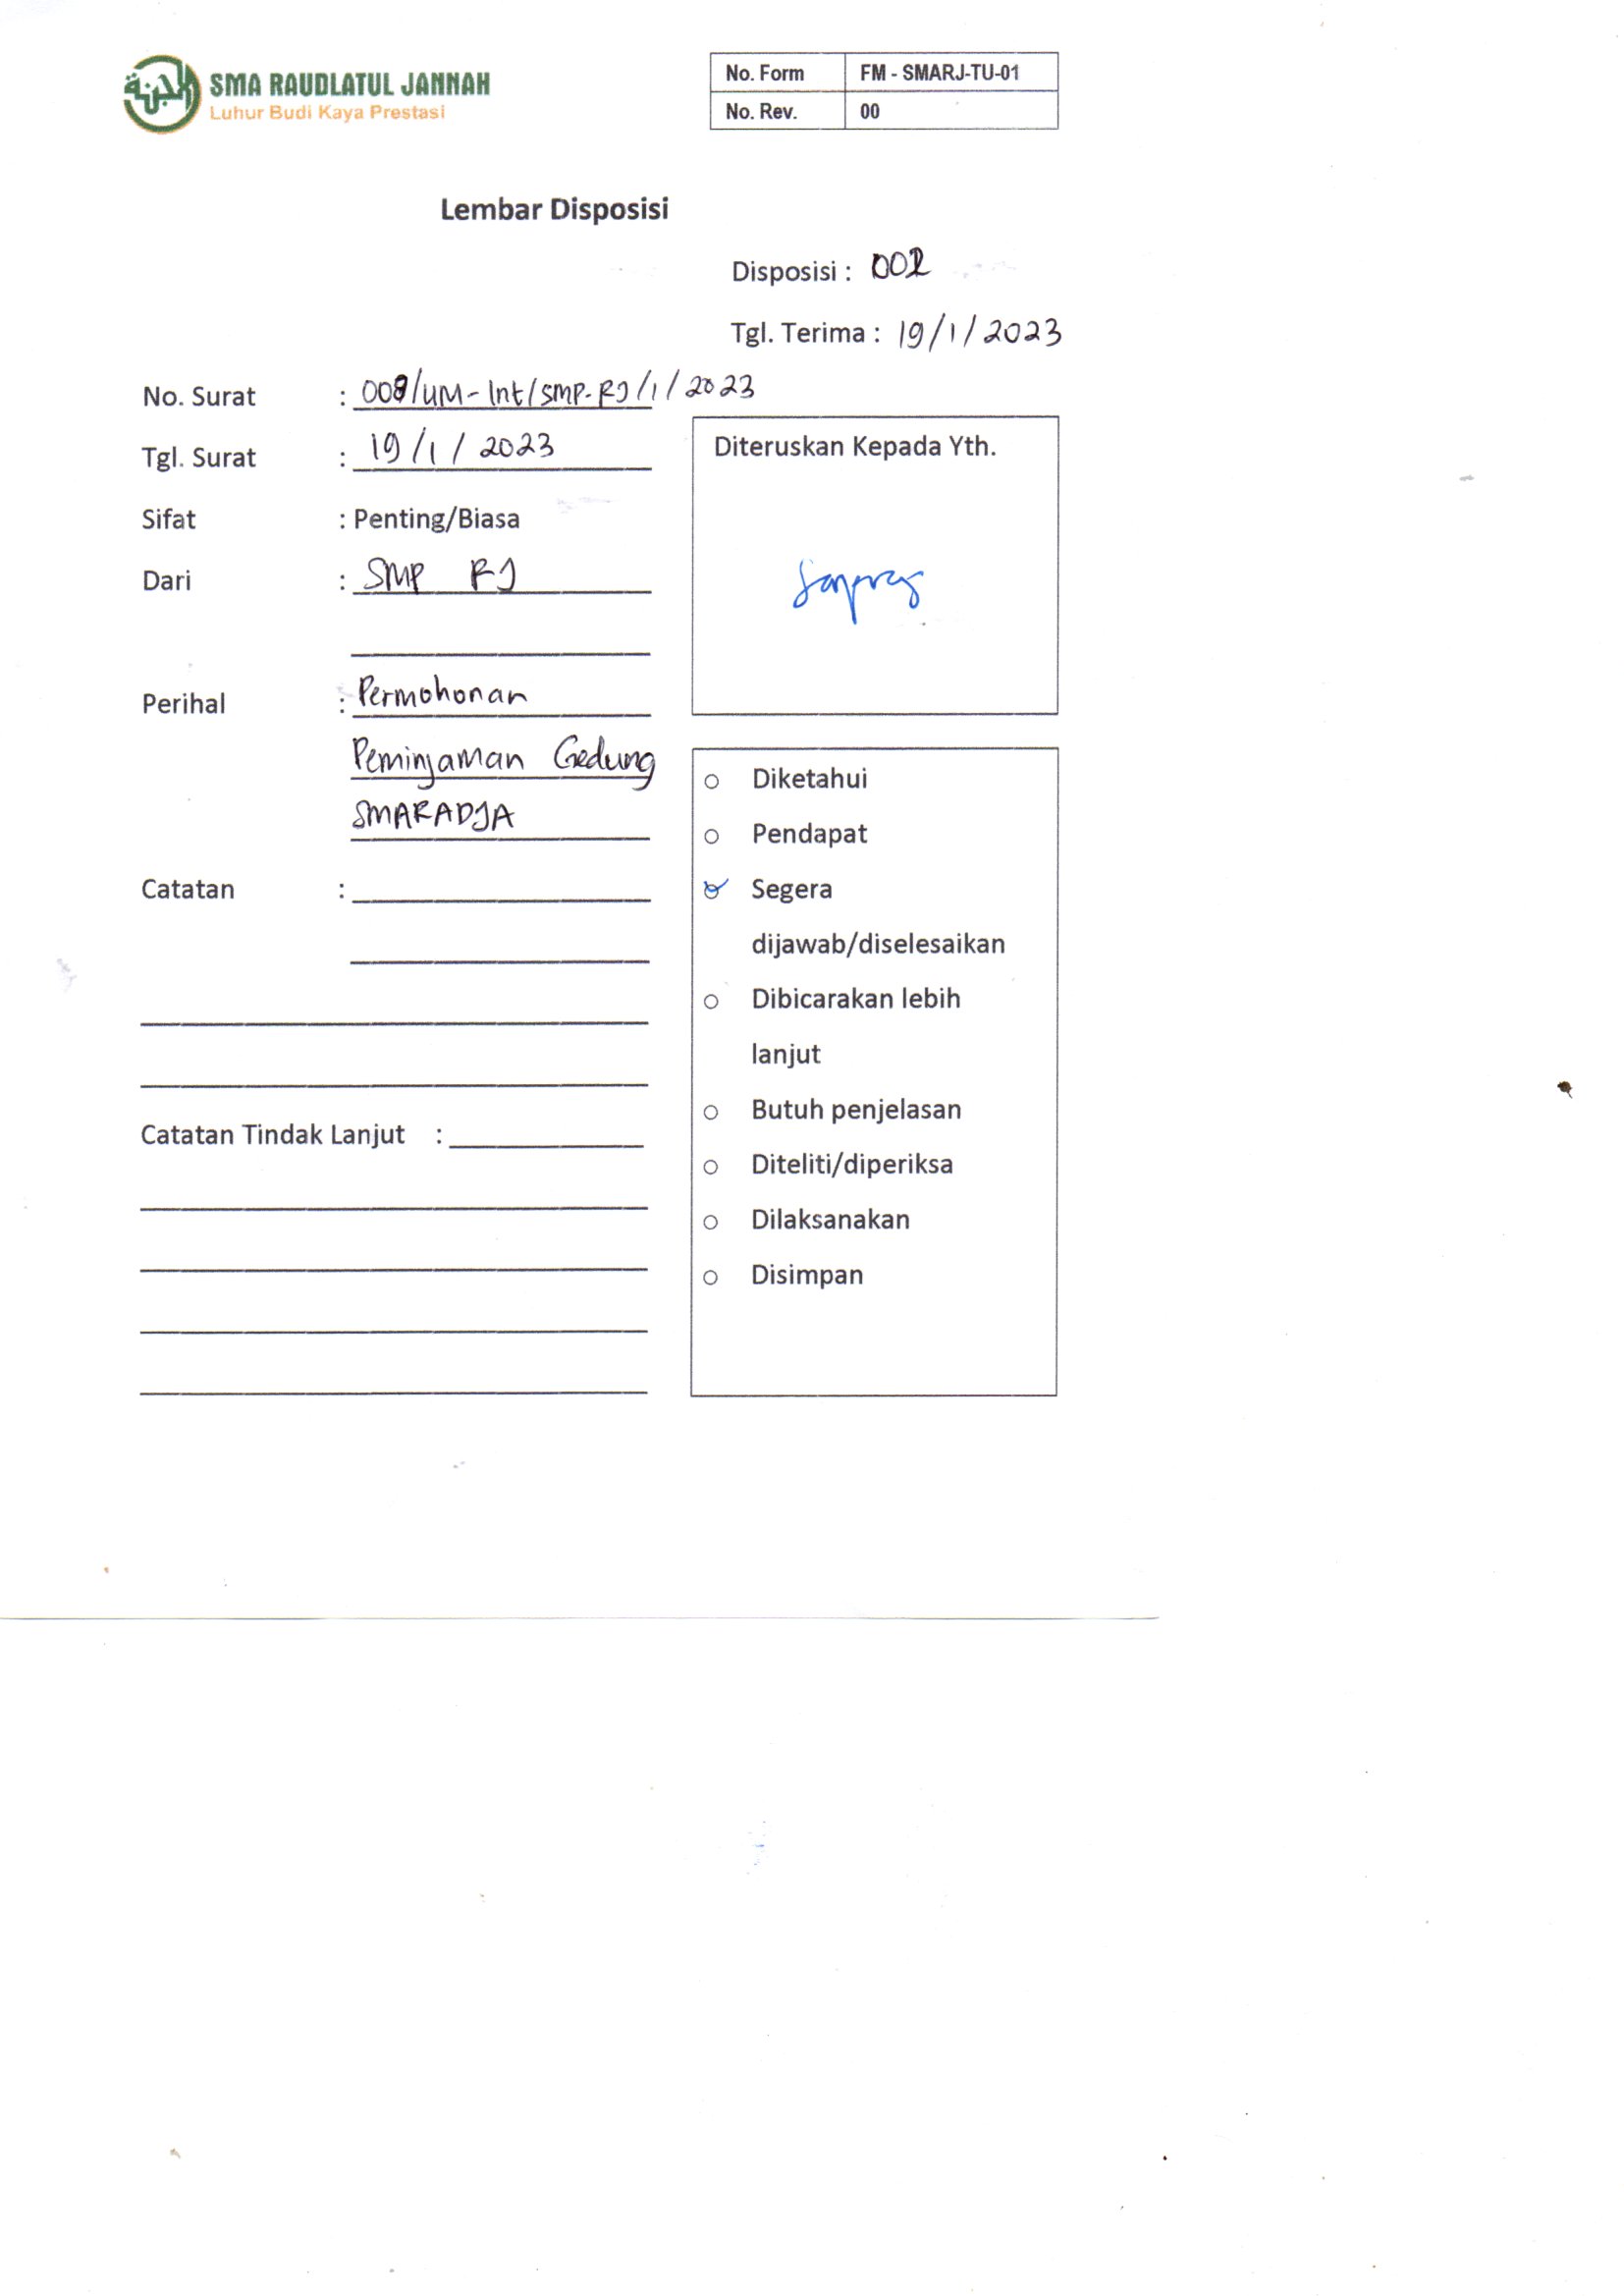 SMA RAUDLATUL JANNAH
Luhur Budi Kaya Prestasi
No. Form FM - SMARJ-TU-01
No. Rev. 00
Lembar Disposisi
Disposisi : 002
Tgl. Terima : 19/1/2023
No. Surat : 008/UM-Int/SMP-RJ/1/2023
Tgl. Surat : 19/1/2023
Sifat : Penting/Biasa
Dari : SMP RJ
Perihal : Permohonan
Peminjaman Gedung
SMARADJA
Catatan :
Catatan Tindak Lanjut :
Diteruskan Kepada Yth.
Sarpras
Diketahui
Pendapat
Segera
dijawab/diselesaikan
Dibicarakan lebih
lanjut
Butuh penjelasan
Diteliti/diperiksa
Dilaksanakan
Disimpan